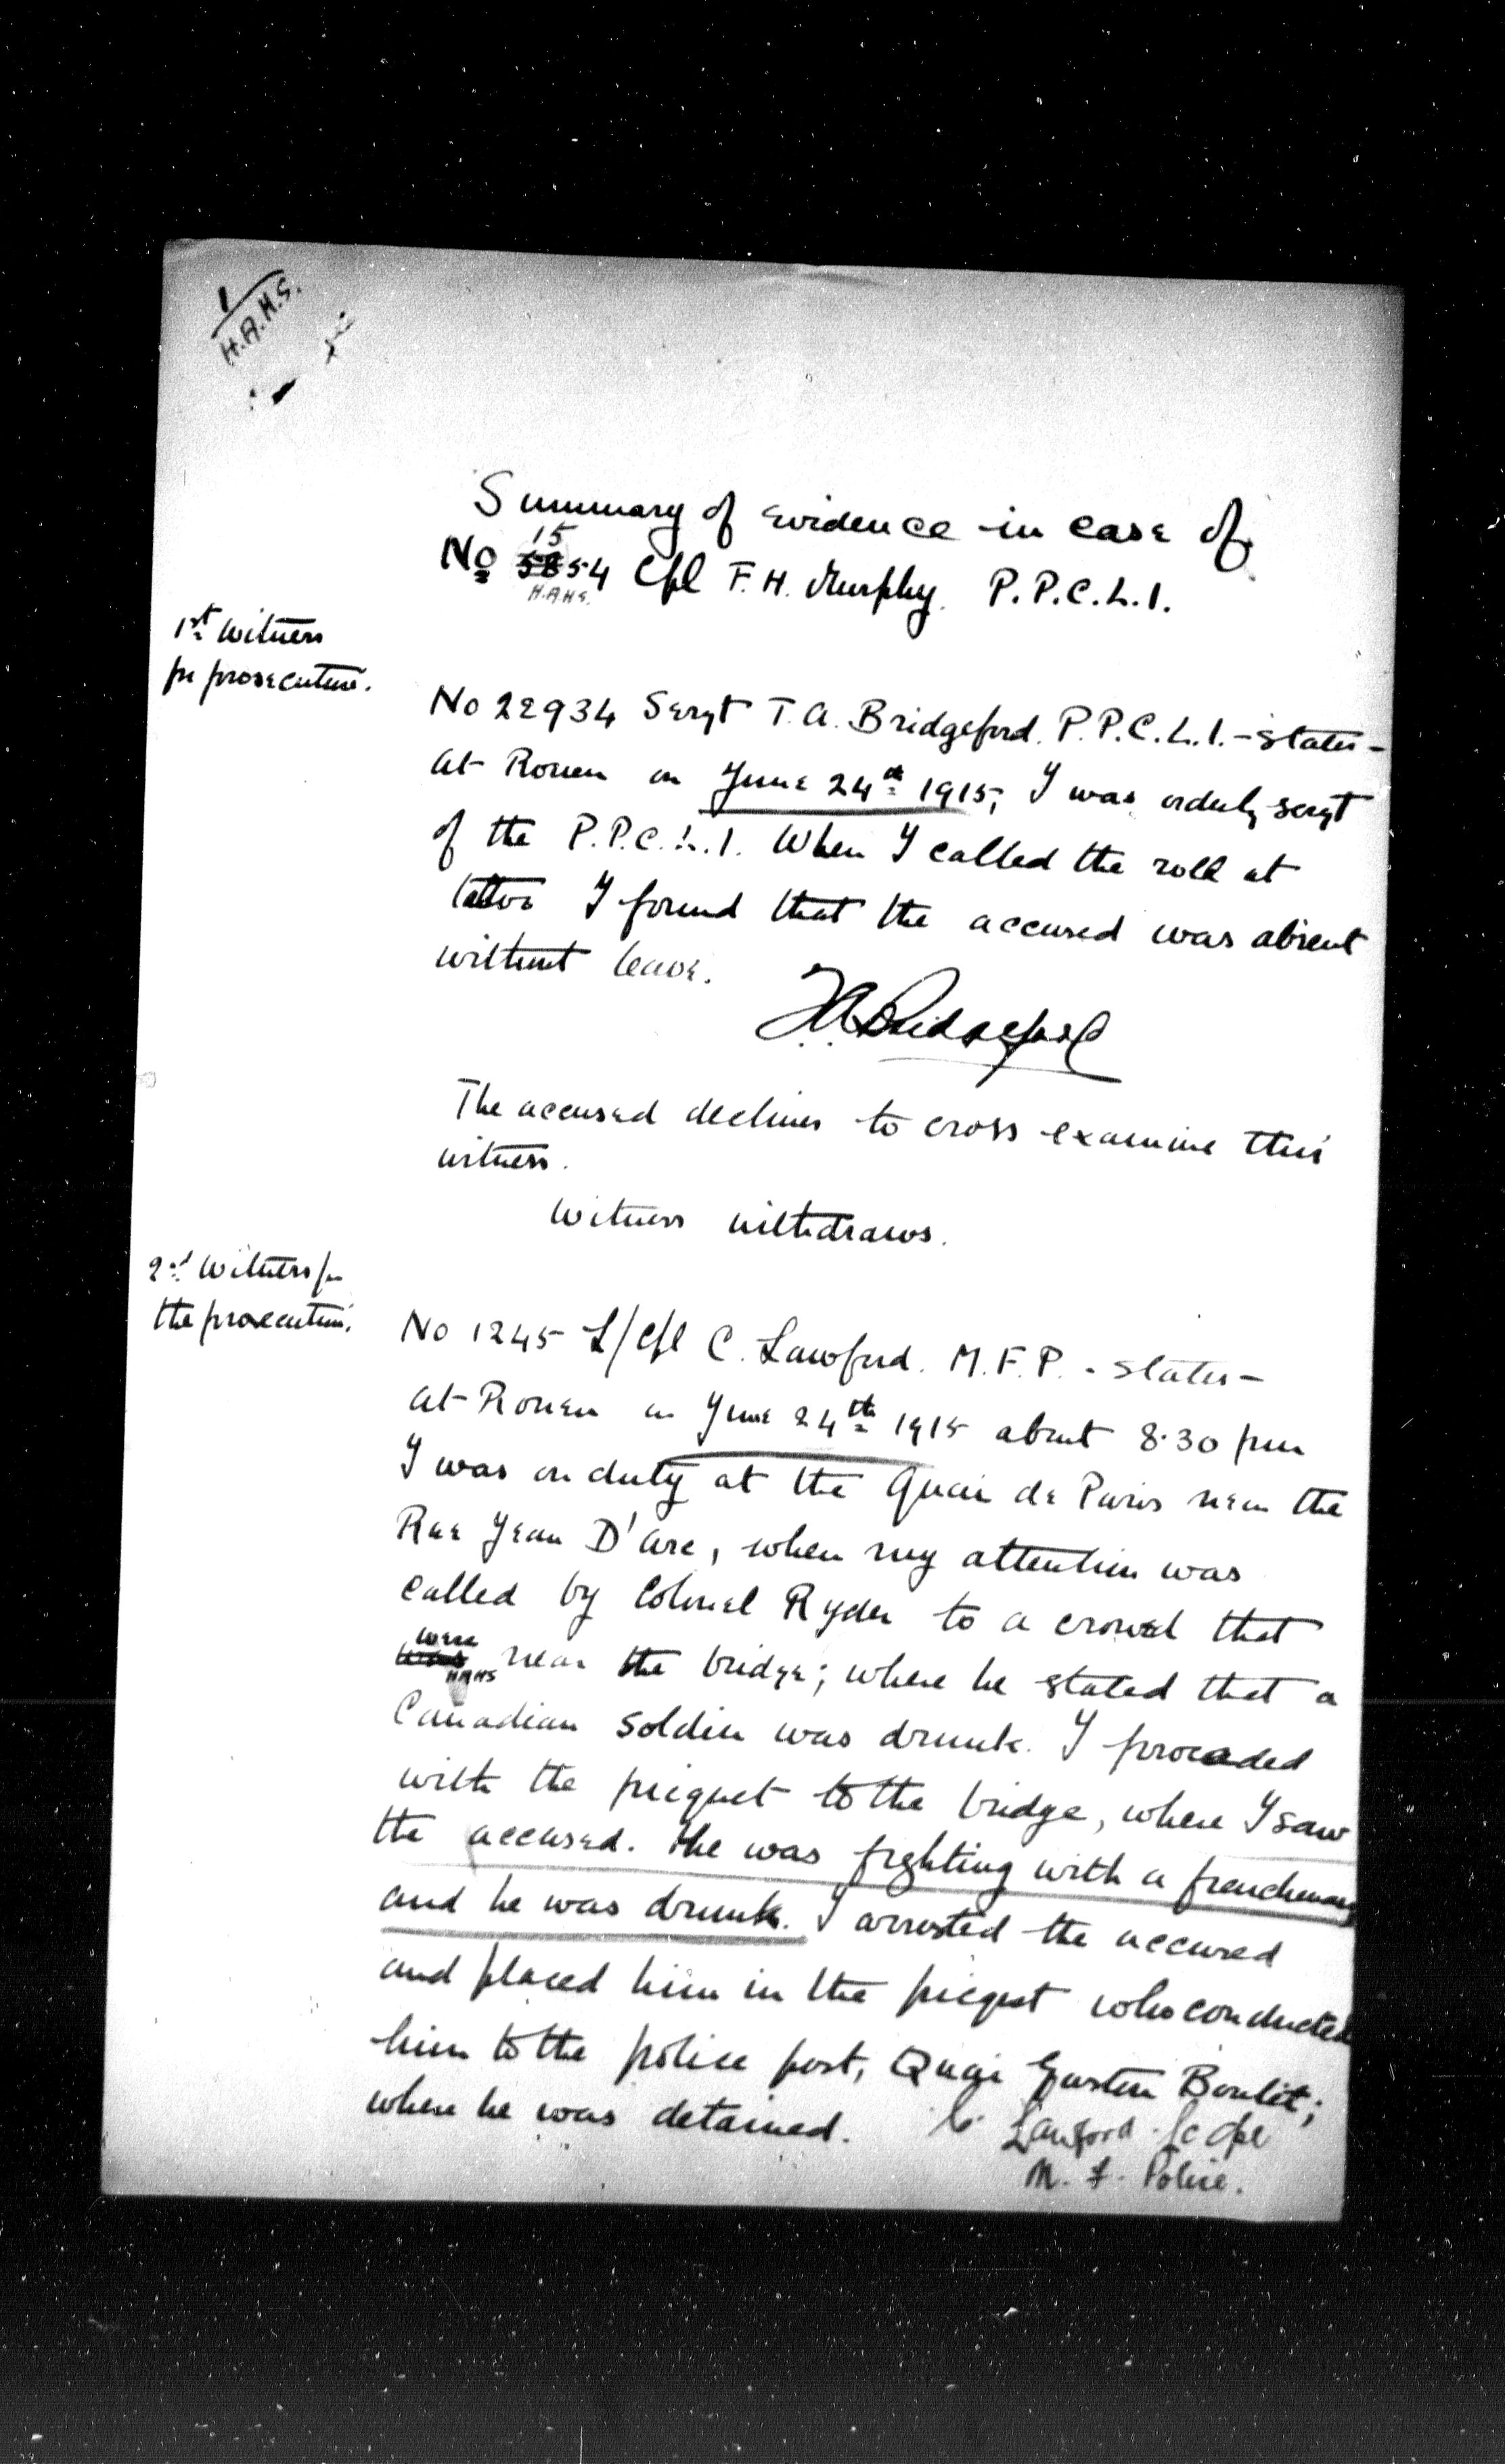 1
H.A.H.S.
Summary of evidence in case of
15
No 5854 Cpl F. H. Murphy. P.P.C.L.I.
H.A.H.S.
1st Witness
for prosecution.
No 22934 Sergt T. A. Bridgeford. P.P.C.L.I. - states -
at Rouen on June 24th 1915, I was orderly sergt
of the P.P.C.L.I. When I called the roll at
tattoo I found that the accused was absent
without leave.
TA Bridgeford
The accused declines to cross examine this
witness.
Witness withdraws.
2nd Witness for
the prosecution.
No 1245 L/Cpl C. Lawford. M.F.P. - states -
at Rouen on June 24th 1915 about 8.30 pm
I was on duty at the Quai de Paris near the
Rue Jean D'arc, when my attention was
called by Colonel Ryder to a crowd that
were
was near the bridge; where he stated that a
HAHS
Canadian soldier was drunk. I proceeded
with the picquet to the bridge, where I saw
the accused. He was fighting with a frenchman
and he was drunk. I arrested the accused
and placed him in the picquet who conducted
him to the police post, Quai Gaston Boulet;
where he was detained. C. Lawford. Lc Cpl
M. F. Police.